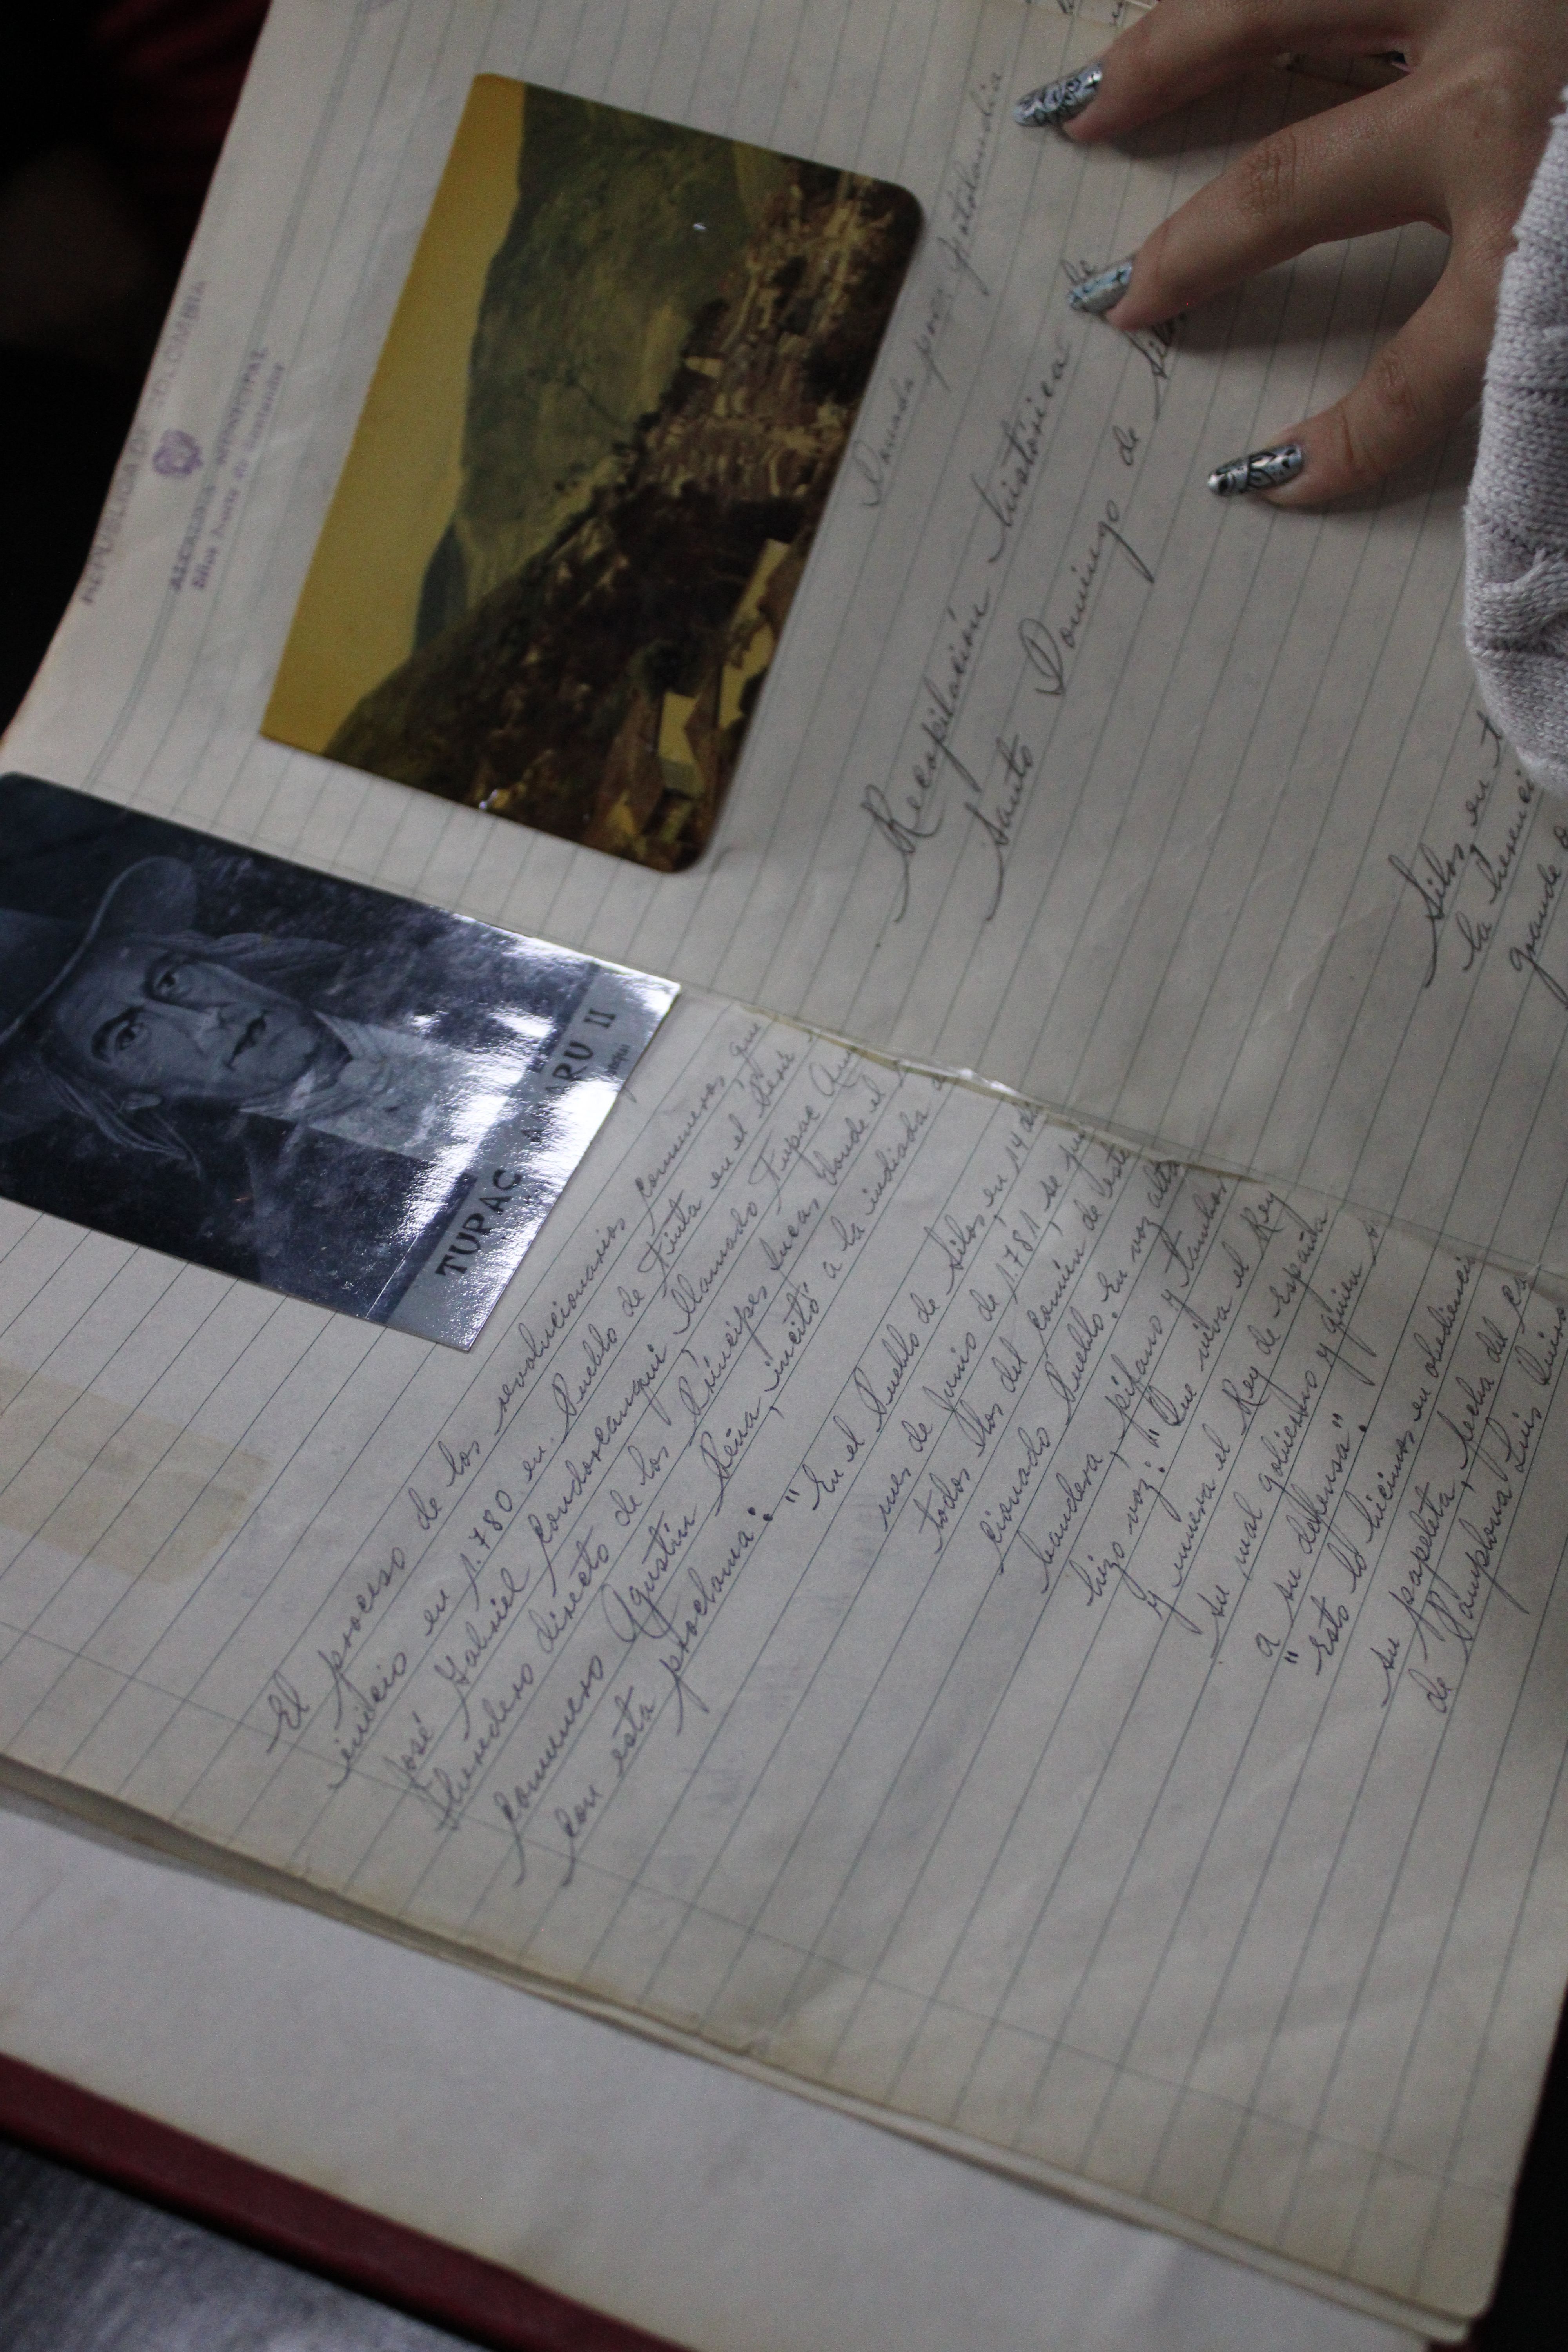 REPUBLICA DE COLOMBIA
ALCALDIA MUNICIPAL
Silos Norte de Santander
Donada por
Recopilación histórica de
Santo Domingo de Silos
Silos en
la herenci
grande
TUPAC AMARU II
El proceso de los revolucionarios comuneros que
inicio en 1.780 en Pueblo de Tinta en el Perú
José Gabriel Condorcanqui llamado Tupac Am
Heredero directo de los Príncipes Incas donde el
Comunero Agustín Peña, incitó a la indiada
con esta proclama:
"En el Pueblo de Silos, en 14 de
mes de Junio de 1.781, se
todos los del común de este
cionado Pueblo. En voz alta
bandera, pifano y tambor
hizo voz: "Que viva el Rey
y muera el Rey de España
su mal gobierno y quien
a su defensa".
"Esto lo hicimos en obedienci
su papeleta, fecha del
de Pamplona Luis